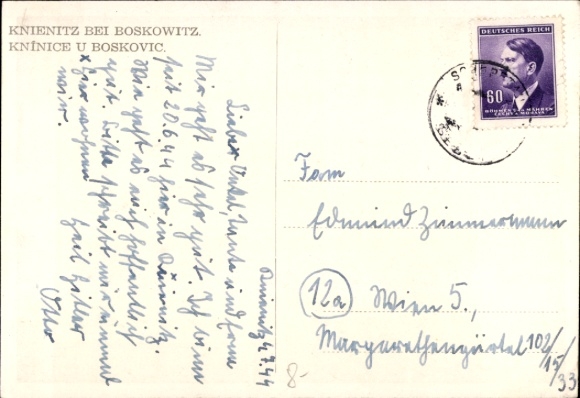 KNIENITZ BEI BOSKOWITZ.
KNÍNICE U BOSKOVIC.
Knienitz 4.7.44
Lieber Onkel, Tante und
Mir geht es sehr gut. Ich bin
seit 20.6.44 hier in Knienitz.
Wie geht es euch hoffentlich
gut. Bitte schreibt mir einmal
x hier wohnen
wir.
Heil Hitler
Otto
DEUTSCHES REICH
60
BÖHMEN u. MÄHREN
ČECHY a MORAVA
Fam
Edmund Zimmermann
12a Wien 5.,
Margarethengürtel 102/
15/
33
8-